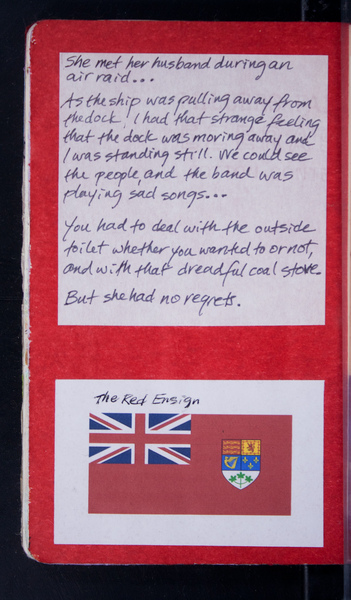 She met her husband during an
air raid...
As the ship was pulling away from
the dock I had that strange feeling
that the dock was moving away and
I was standing still. We could see
the people, and the band was
playing sad songs...
You had to deal with the outside
toilet whether you wanted to or not,
and with that dreadful coal stove.
But she had no regrets.
The Red Ensign